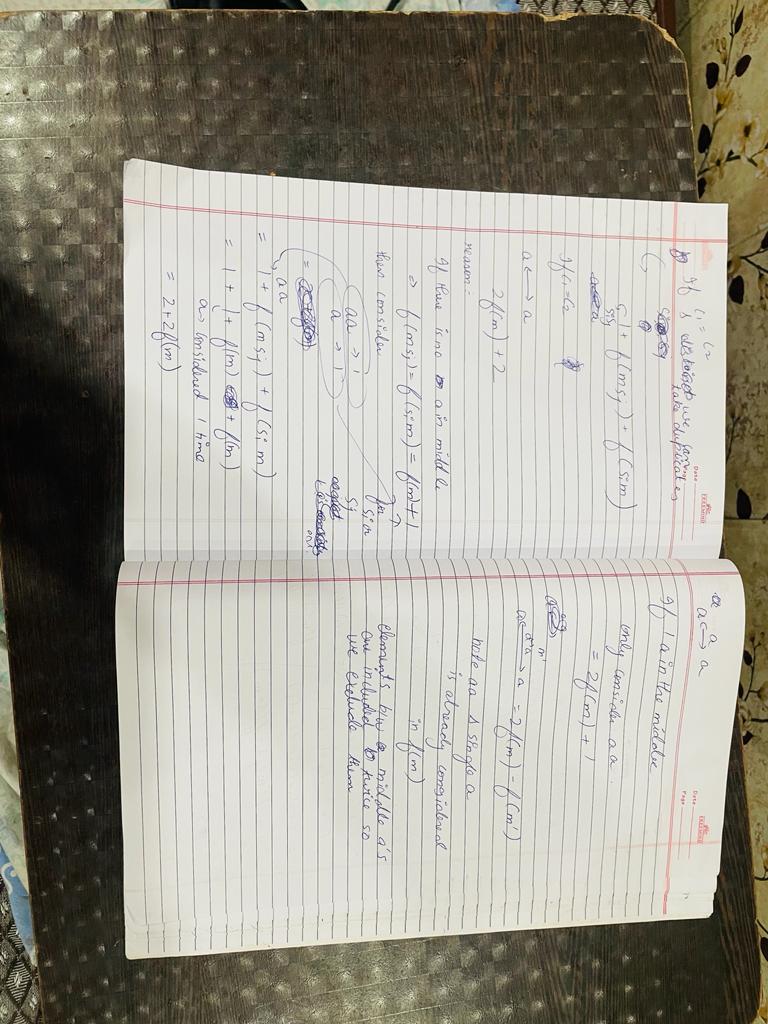 Date
If C1 = C2
↳ If s distinct we can
take duplicates
1 + f(m sj) + f(si m)
If C1 = C2
a ↔ a
2f(m) + 2
reason:
If there is no a in middle
⇒ f(m sj) = f(si m) = f(m) + 1
then consider
aa → 1
a → 1
for si or sj
=
↳ aa
= 1 + f(m sj) + f(si m)
= 1 + 1 + f(m) + f(m)
a → considered 1 time
= 2 + 2f(m)
Date
Page
a
a ↔ a
If 1 a in the middle
only consider aa.
= 2f(m) + 1
m'
a ↔ a ↔ a = 2f(m) - f(m')
note aa & single a
is already considered
in f(m)
elements b/w middle a's
are included twice so
we exclude them